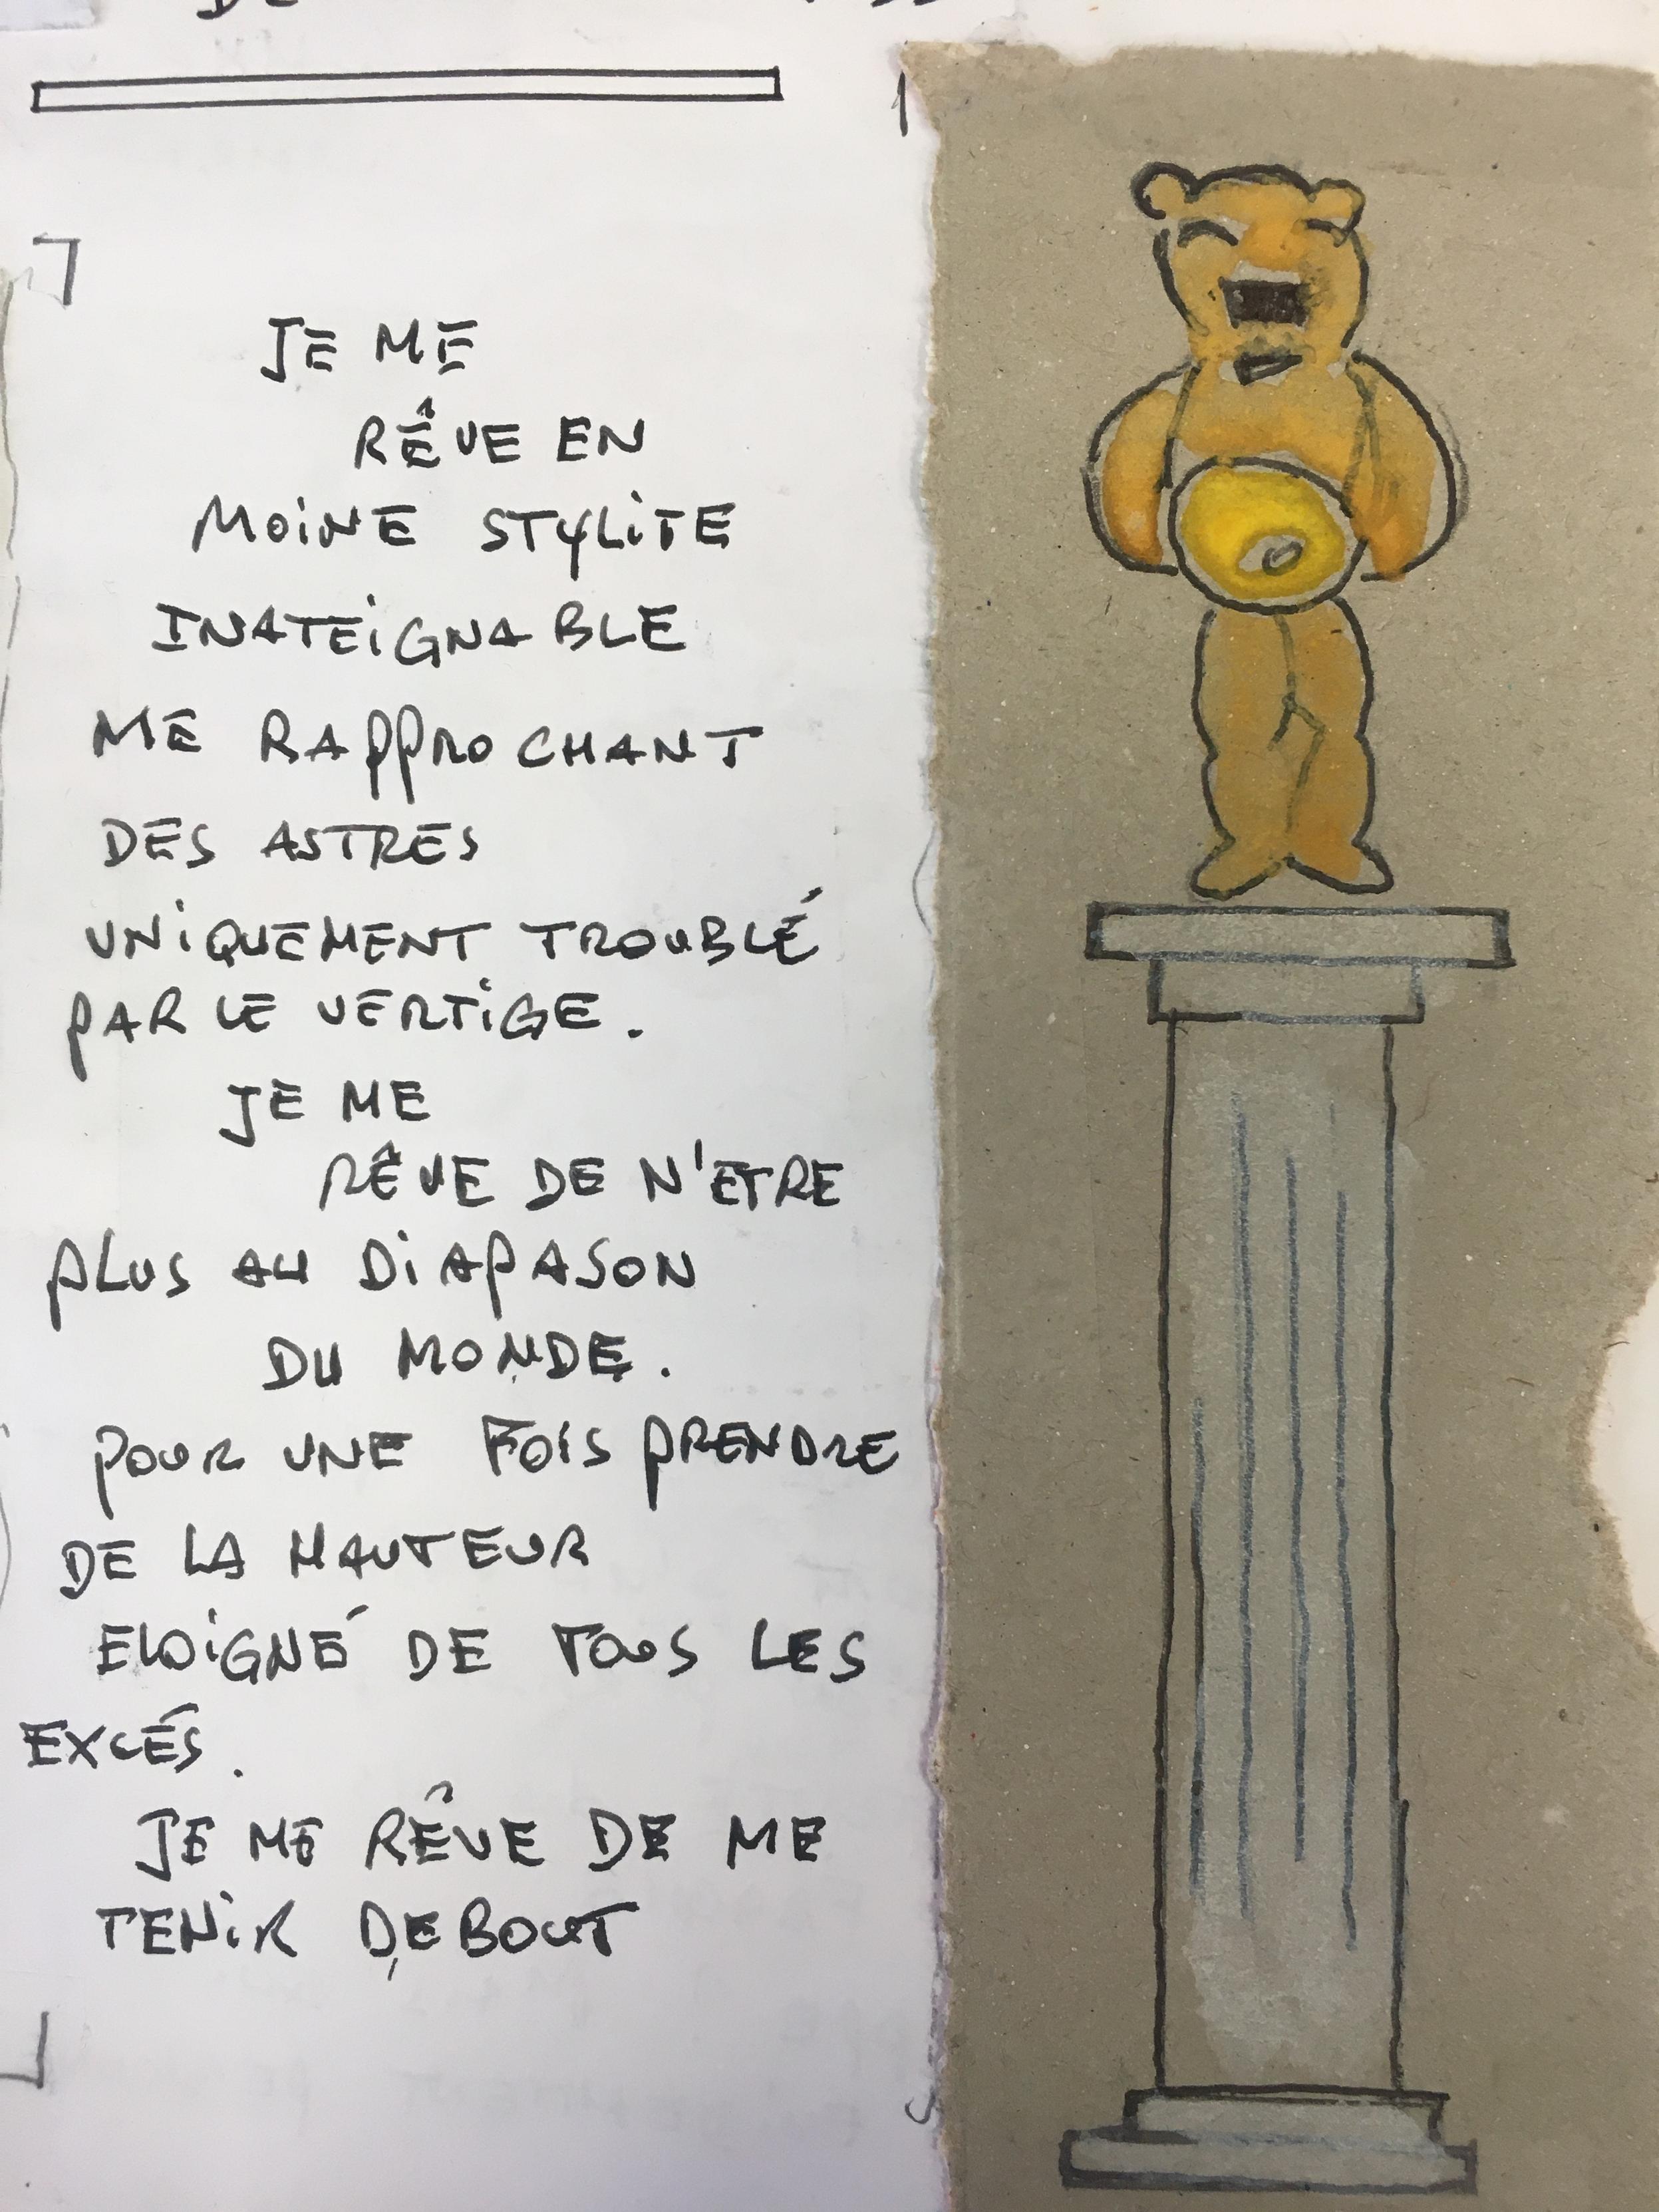 JE ME
RÊVE EN
MOINE STYLITE
INATEIGNABLE
ME RAPPROCHANT
DES ASTRES
UNIQUEMENT TROUBLÉ
PAR LE VERTIGE.
JE ME
RÊVE DE N'ETRE
PLUS AU DIAPASON
DU MONDE.
POUR UNE FOIS PRENDRE
DE LA HAUTEUR
ELOIGNÉ DE TOUS LES
EXCÉS.
JE ME RÊVE DE ME
TENIR DEBOUT